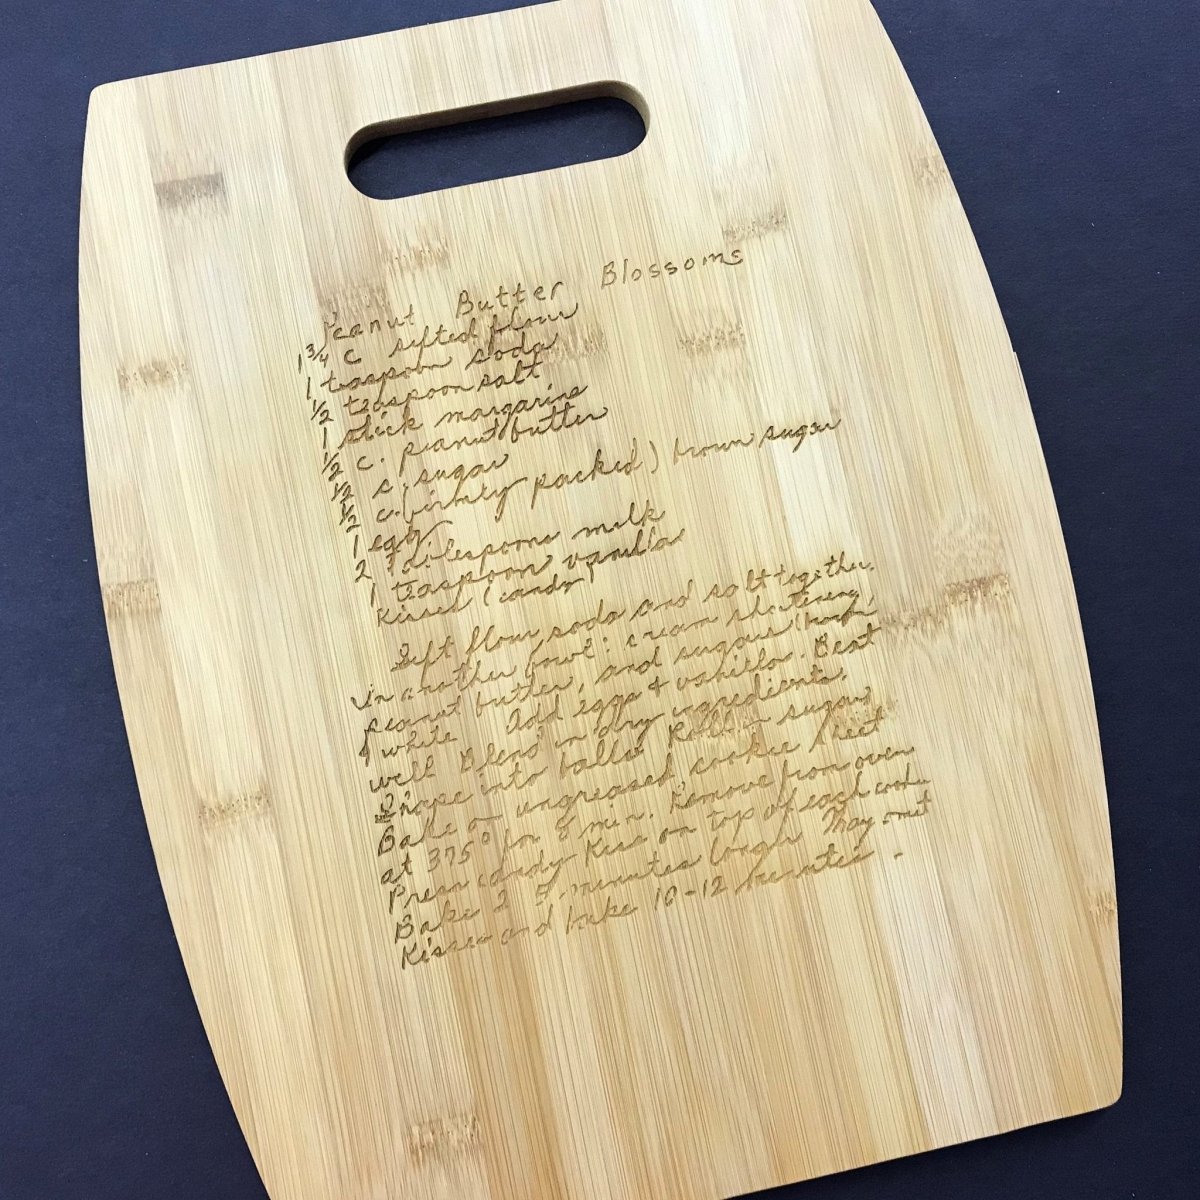 Peanut Butter Blossoms
1 3/4 C sifted flour
1 teaspoon soda
1/2 teaspoon salt
1 stick margarine
1/2 c. peanut butter
1/2 c. sugar
1/2 c. (firmly packed) brown sugar
1 egg
2 Tablespoons milk
1 teaspoon vanilla
Kisses (candy)
Sift flour, soda and salt together.
In another bowl: cream shortening,
peanut butter, and sugars (brown
& white Add eggs + vanilla. Beat
well Blend in dry ingredients.
Shape into balls Roll in sugar
Bake on ungreased cookie sheet
at 375° for 8 min. Remove from oven
Press candy Kiss on top of each cookie
Bake 2 5 minutes longer May omit
Kisses and bake 10-12 minutes.